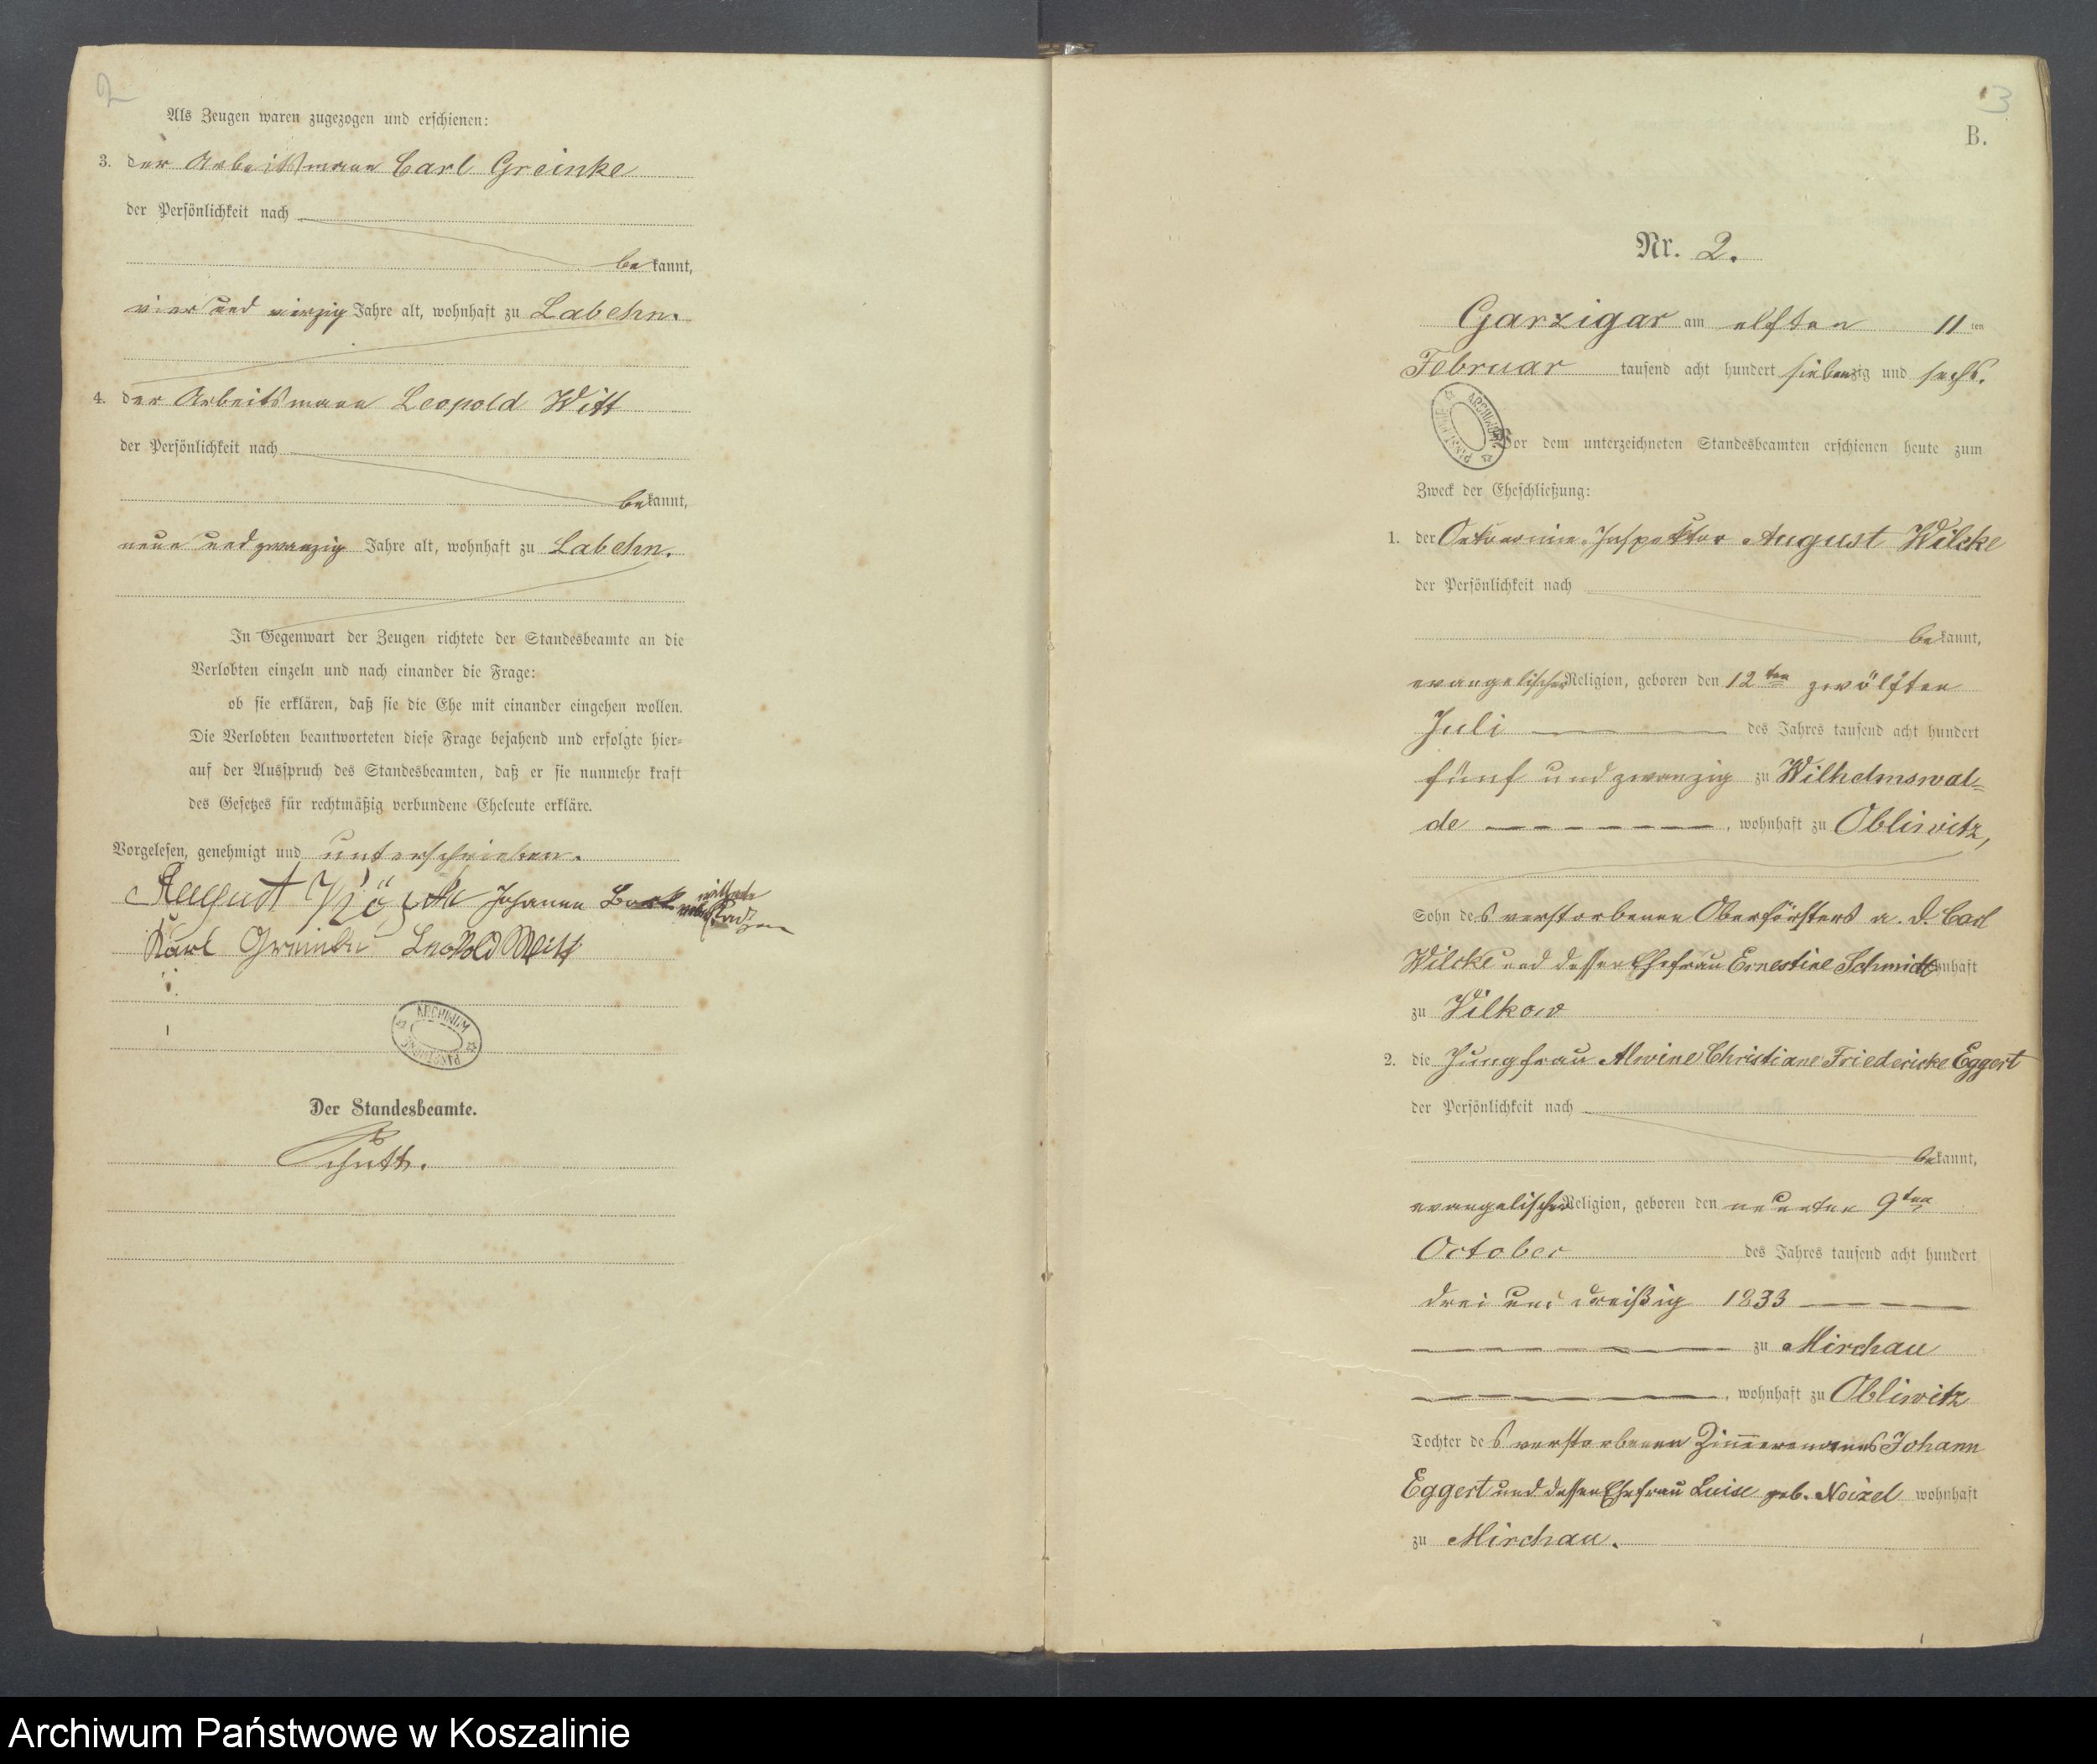 2
Als Zeugen waren zugezogen und erschienen:
3. der Arbeitsmann Carl Greinke
der Persönlichkeit nach
bekannt,
vier und vierzig Jahre alt, wohnhaft zu Labehn.
4. der Arbeitsmann Leopold Witt
der Persönlichkeit nach
bekannt,
neun und zwanzig Jahre alt, wohnhaft zu Labehn.
In Gegenwart der Zeugen richtete der Standesbeamte an die
Verlobten einzeln und nach einander die Frage:
ob sie erklären, daß sie die Ehe mit einander eingehen wollen.
Die Verlobten beantworteten diese Frage bejahend und erfolgte hier-
auf der Ausspruch des Standesbeamten, daß er sie nunmehr kraft
des Gesetzes für rechtmäßig verbundene Eheleute erkläre.
Vorgelesen, genehmigt und unterschrieben.
August Johanna
Karl Greinke Leopold Witt
ARCHIWUM PAŃSTWOWE
Der Standesbeamte.
3
B.
Nr. 2.
Garzigar am elften 11ten
Februar tausend acht hundert siebenzig und sechs.
ARCHIWUM PAŃSTWOWE
Vor dem unterzeichneten Standesbeamten erschienen heute zum
Zweck der Eheschließung:
1. der Oekonomie-Inspektor August Wilcke
der Persönlichkeit nach
bekannt,
evangelischer Religion, geboren den 12ten zwölften
Juli des Jahres tausend acht hundert
fünf und zwanzig zu Wilhelmswal-
de, wohnhaft zu Obliwitz,
Sohn des verstorbenen Oberförsters a. D. Carl
Wilcke und dessen Ehefrau Ernestine Schmidt wohnhaft
zu Wilkow
2. die Jungfrau Alwine Christiane Friedericke Eggert
der Persönlichkeit nach
bekannt,
evangelischer Religion, geboren den neunten 9ten
October des Jahres tausend acht hundert
drei und dreißig 1833
zu Mirchau
, wohnhaft zu Obliwitz
Tochter des verstorbenen Zimmermanns Johann
Eggert und dessen Ehefrau Luise geb. Noizel wohnhaft
zu Mirchau.
Archiwum Państwowe w Koszalinie